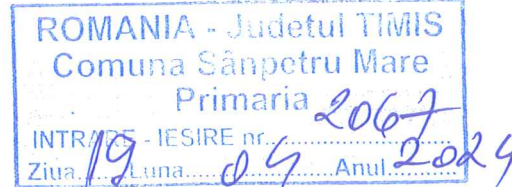 ROMANIA - Judetul TIMIS
Comuna Sânpetru Mare
Primaria
INTRARE - IESIRE nr. 2067
Ziua 19 Luna 04 Anul 2024